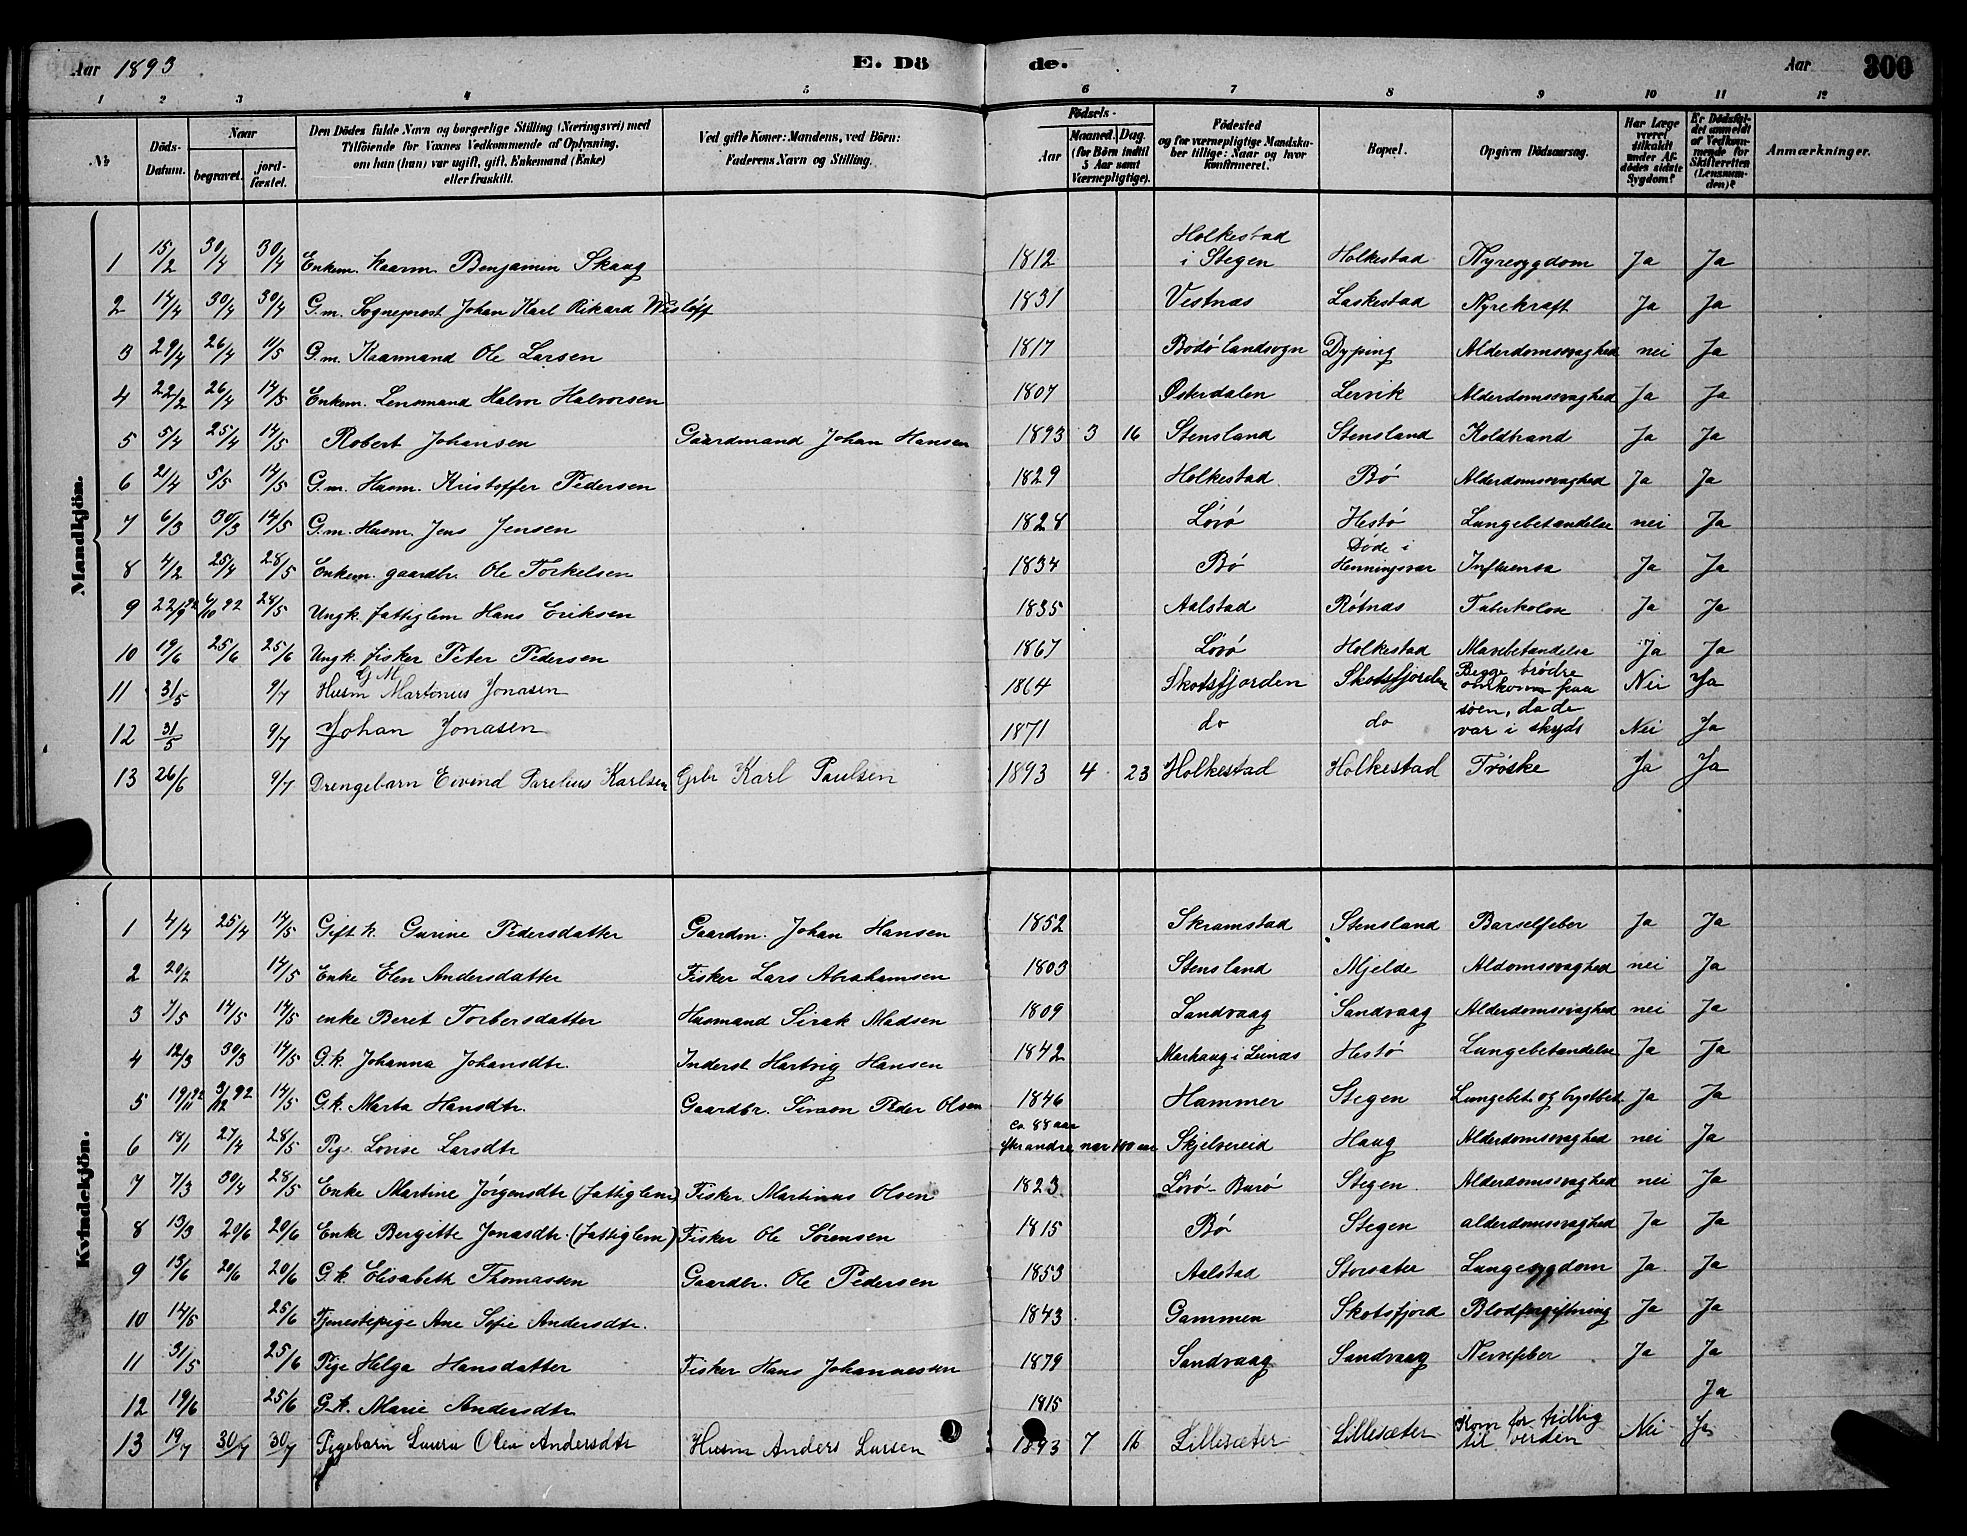 Aar 1893 E. Dö de. Aar 300
1 2 3 4 5 6 7 8 9 10 11 12
No. Döds-Datum. Naar begravet. jordfæstet. Den Dödes fulde Navn og borgerlige Stilling (Næringsvei) med Tilföiende for Voxnes Vedkommende af Oplysning, om han (hun) var ugift, gift, Enkemand (Enke) eller fraskilt. Ved gifte Koner: Mandens, ved Börn: Faderens Navn og Stilling. Födsels- Aar Maaned. Dag. (for Börn indtil 5 Aar samt Værnepligtige). Födested og for værnepligtige Mandskaber tillige: Naar og hvor konfirmeret. Bopæl. Opgiven Dödsaarsag. Har Læge været tilkaldt under Afdödes sidste Sygdom? Er Dödsfaldet anmeldt af Vedkommende for Skifteretten (Lensmanden)? Anmærkninger.
Mandkjön.
1 15/2 30/4 30/4 Enkem. Kaarm. Benjamin Skaug 1812 Holkestad i Stegen Holkestad Nyresygdom Ja Ja
2 14/4 30/4 30/4 G.m. Sogneprest Johan Karl Rikard Wisløff 1831 Vestnæs Laskestad Nyrekræft Ja Ja
3 29/4 26/4 11/5 G.m. Kaarmand Ole Larsen 1817 Bodø landsogn Dyping Alderdomssvaghed nei Ja
4 22/2 26/4 14/5 Enkem. Lensmand Halvor Halvorsen 1807 Østerdalen Leivik Alderdomssvaghed Ja Ja
5 5/4 25/4 14/5 Robert Johansen Gaardmand Johan Hansen 1893 3 16 Stensland Stensland Koldbrand Ja Ja
6 21/4 5/5 14/5 G.m. Husm. Kristoffer Pedersen 1829 Holkestad Bø Alderdomssvaghed Ja Ja
7 6/3 30/3 14/5 G.m. Husm. Jens Jensen 1828 Løvø Hestø Lungebetændelse nei Ja
8 4/2 25/4 28/5 Enkem. gaardbr. Ole Torkelsen 1834 Bø Døde i Henningsvær Influensa Ja Ja
9 22/9 92 6/10 92 28/5 Ungk. fattiglem Hans Eriksen 1835 Aalstad Røtnæs Tuberkolose Ja Ja
10 19/6 25/6 25/6 Ungk. fisker Peter Pedersen 1867 Løvø Holkestad Mavebetændelse Ja Ja
11 31/5 9/7 G M Husm Martonius Jonasen 1864 Skotsfjorden Skotsfjorden Begge brødre omkom paa Nei Ja
12 31/5 9/7 Johan Jonasen 1871 do do søen, da de var i skyds Nei Ja
13 26/6 9/7 Drengebarn Eivind Parelius Karlsen Grbr Karl Paulsen 1893 4 23 Holkestad Holkestad Trøske Ja Ja
Kvindekjön.
1 4/4 25/4 14/5 Gift k. Gurine Pedersdatter Gaardm. Johan Hansen 1852 Skramstad Stensland Barselfeber Ja Ja
2 20/2 14/5 Enke Elen Andersdatter Fisker Lars Abrahamsen 1803 Stensland Mjelde Aldomssvaghed nei Ja
3 7/5 14/5 14/5 enke Beret Torbersdatter Husmand Sirak Madsen 1809 Sandvaag Sandvaag Alderdomssvaghed nei Ja
4 12/3 30/3 14/5 G.k. Johanna Johansdtr. Inderst Hartvig Hansen 1842 Marhaug i Leinæs Hestø Lungebetændelse Ja Ja
5 19/11 92 3/12 92 14/5 G.k. Marta Hansdtr. Gaardbr. Simon Peder Olsen 1846 Hammer Stegen Lungebet. og brystbet. Ja Ja
6 18/1 27/4 28/5 Pige Lovise Larsdtr ca. 88 aar efter andre nær 100 aar Skjelvereid Haug Alderdomssvaghed nei Ja
7 7/3 30/4 28/5 Enke Martine Jørgensdtr (fattiglem) Fisker Martinus Olsen 1823 Løvø-Burø Stegen Alderdomssvaghed nei Ja
8 13/3 20/6 20/6 Enke Bergitte Jonasdtr. (fattiglem) Fisker Ole Sørensen 1815 Bø Stegen alderdomssvaghed Ja Ja
9 13/6 20/6 20/6 G.k. Elisabeth Thomassen Gaardbr. Ole Pedersen 1853 Aalstad Storsæter Lungesygdom Ja Ja
10 14/5 25/6 Tjenestepige Ane Sofie Andersdtr. 1843 Gammen Skotsfjord Blodforgiftning Ja Ja
11 31/5 25/6 Pige Helga Hansdatter Fisker Hans Johannessen 1879 Sandvaag Sandvaag Nervefeber Ja Ja
12 19/6 25/6 G.k. Marie Andersdtr 1815 Ja
13 19/7 30/7 30/7 Pigebarn Laura Olea Andersdtr Husm Anders Larsen 1893 7 16 Lillesæter Lillesæter Kom for tidlig til verden Nei Ja